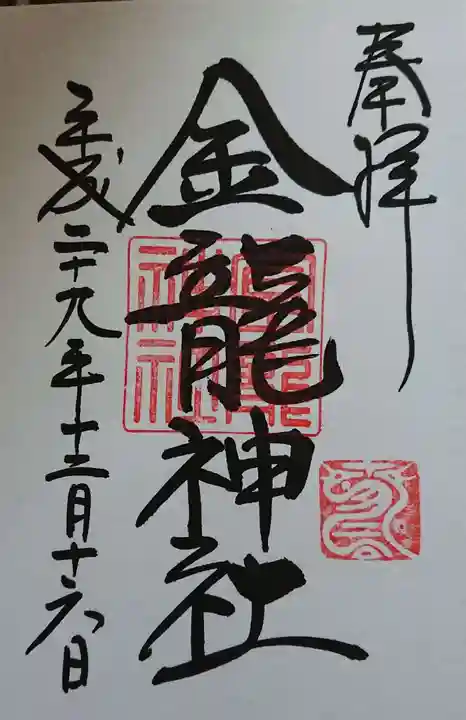 奉拝
金龍神社
平成二十九年十二月十六日